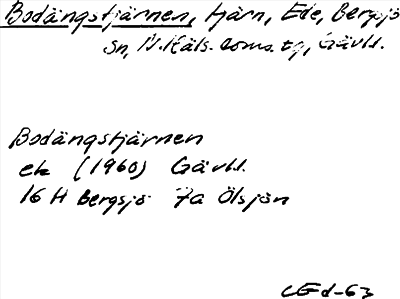 Bodängstjärnen, tjärn, Ede, Bergsjö
sn, N. Häls. doms. tg, Gävll.
Bodängstjärnen
ek (1960) Gävll.
16 H Bergsjö 7a Ölsjön